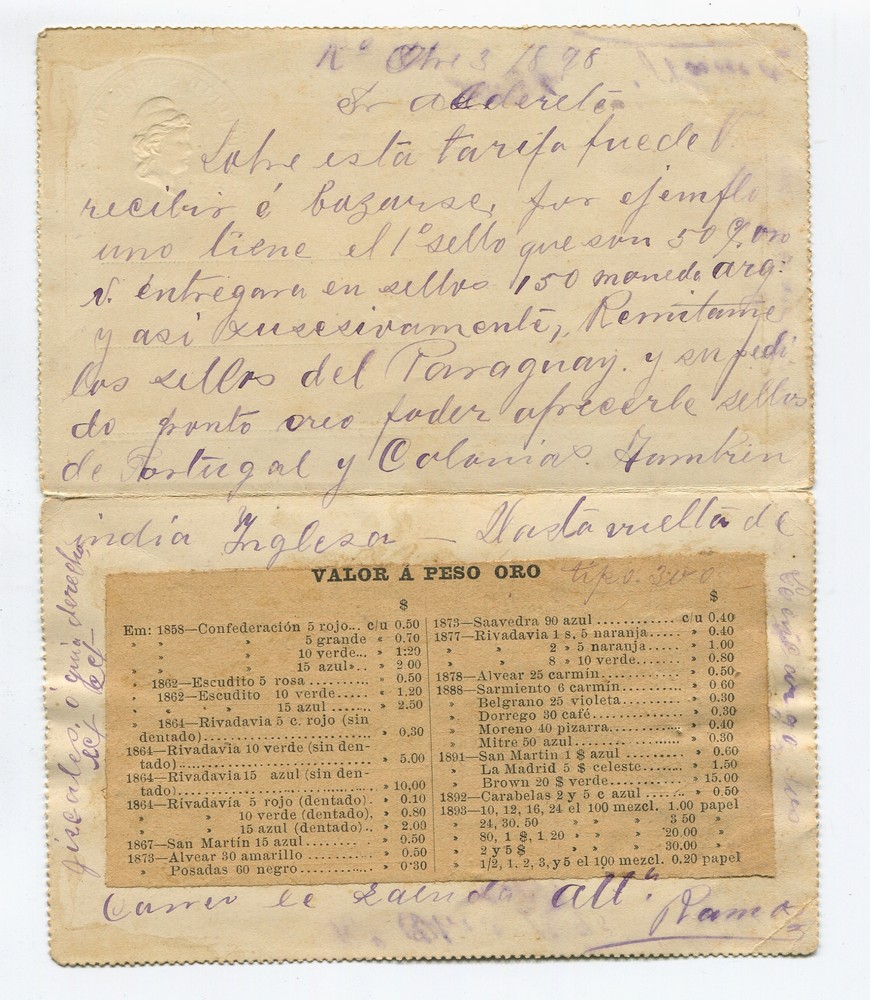 3 1898
Sr Alderete
Sobre está tarifa puede V.
recibir é bazarse, por ejemplo
uno tiene el 1º sello que son 50 ¢ oro
V. éntregara en sellos 150 moneda arg:
y asi susesivamente, Remitame
los sellos del Paraguay. y su pedi
do pronto creo poder ofrecerle sellos
de Portugal y Colonias. Tambien
india Inglesa — Hasta vuelta de
VALOR Á PESO ORO tipo. 300
$
Em: 1858—Confederación 5 rojo... c/u 0.50
» » 5 grande « 0.70
» » 10 verde... » 1:20
» » 15 azul».. » 2 00
» 1862—Escudito 5 rosa .......... « 0.50
» 1862—Escudito 10 verde...... « 1.20
» » » 15 azul ....... » 2.50
» 1864—Rivadavia 5 c. rojo (sin
dentado)........................ » 0.30
1864—Rivadavia 10 verde (sin den-
tado)............................ » 5.00
1864—Rivadavia 15 azul (sin den-
tado)............................ » 10,00
1864—Rivadavia 5 rojo (dentado). » 0.10
» » 10 verde (dentado), » 0.80
» » 15 azul (dentado).. » 2.00
1867—San Martín 15 azul......... » 0.50
1873—Alvear 30 amarillo ........ » 0.50
» Posadas 60 negro........... » 0·30
$
1873—Saavedra 90 azul ........... c/u 0.40
1877—Rivadavia 1 s, 5 naranja..... » 0.40
» » 2 » 5 naranja..... » 1.00
» » 8 » 10 verde...... » 0.80
1878—Alvear 25 carmín............ » 0.50
1888—Sarmiento 6 carmín.......... » 0 60
» Belgrano 25 violeta.......... » 0.30
» Dorrego 30 café............. » 0.30
» Moreno 40 pizarra.......... » 0.40
» Mitre 50 azul.............. » 0.30
1891—San Martin 1 $ azul ........ » 0.60
» La Madrid 5 $ celeste...... » 1.50
» Brown 20 $ verde.......... » 15.00
1892—Carabelas 2 y 5 c azul ..... » 0.50
1893—10, 12, 16, 24 el 100 mezcl. 1.00 papel
» 24, 30. 50 » » » 3 50 »
» 80, 1 $, 1.20 » » » 20.00 »
» 2 y 5 $ » » » 30.00 »
» 1/2, 1, 2, 3, y 5 el 100 mezcl. 0.20 papel
Correo le saluda att.
Ramo